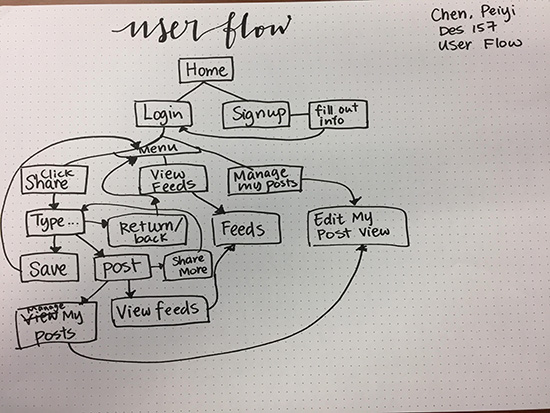 user flow
Chen, Peiyi
Des 157
User Flow
Home
Login
Signup
fill out
info
Menu
Click
Share
View
Feeds
Manage
my posts
Type...
Return/
back
Feeds
Edit My
Post view
Save
post
Share
More
Manage
View My
posts
View feeds